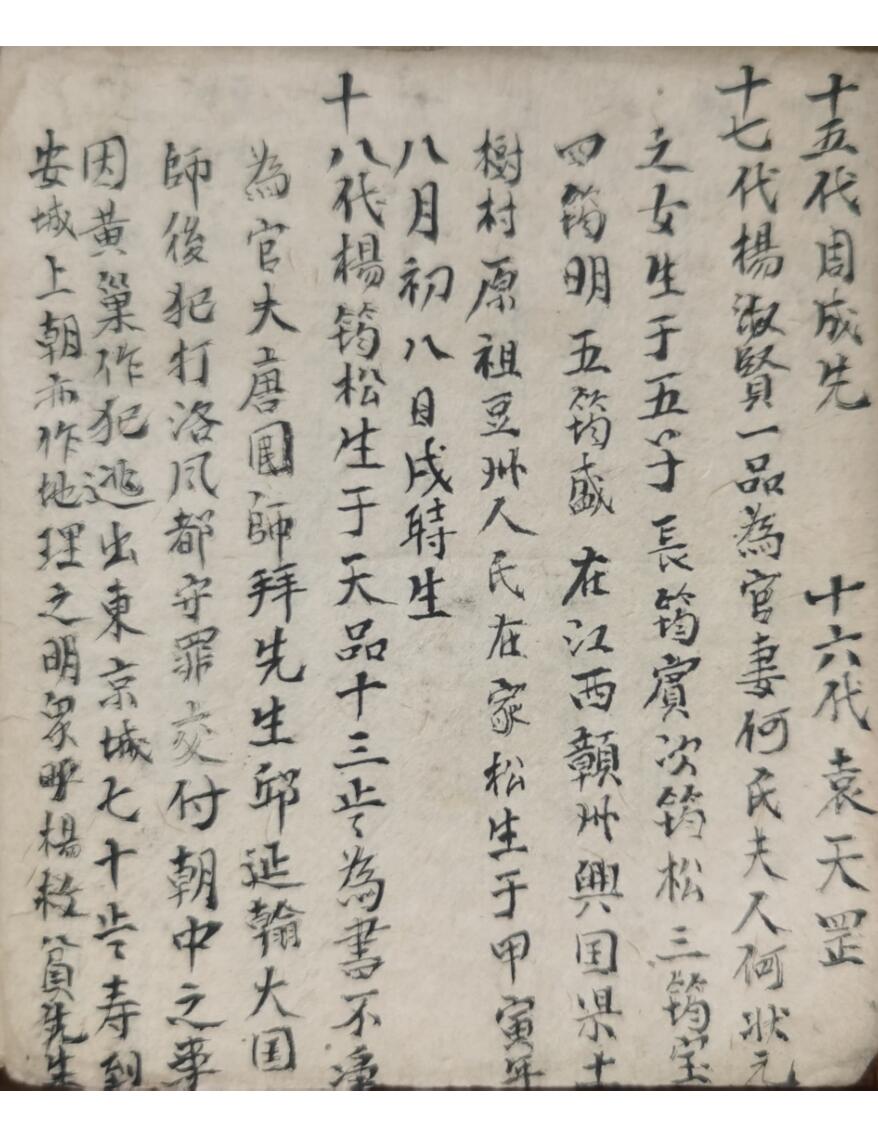 十五代周成先 十六代袁天罡
十七代楊淑賢一品為官妻何民夫人何狀元
之女生于五子長筠賓次筠松三筠宝
四筠明五筠盛在江西贛州興国県土
樹村原祖豆州人民在家松生于甲寅年
八月初八日戌時生
十八代楊筠松生于天品十三歲為書不
為官大唐國師拜先生邱延翰大国
師後犯打洛風都守罪交付朝中之事
因黃巢作犯逃出東京城七十歲寿到
安城上朝亦作地理之明眾呼楊救貧先生